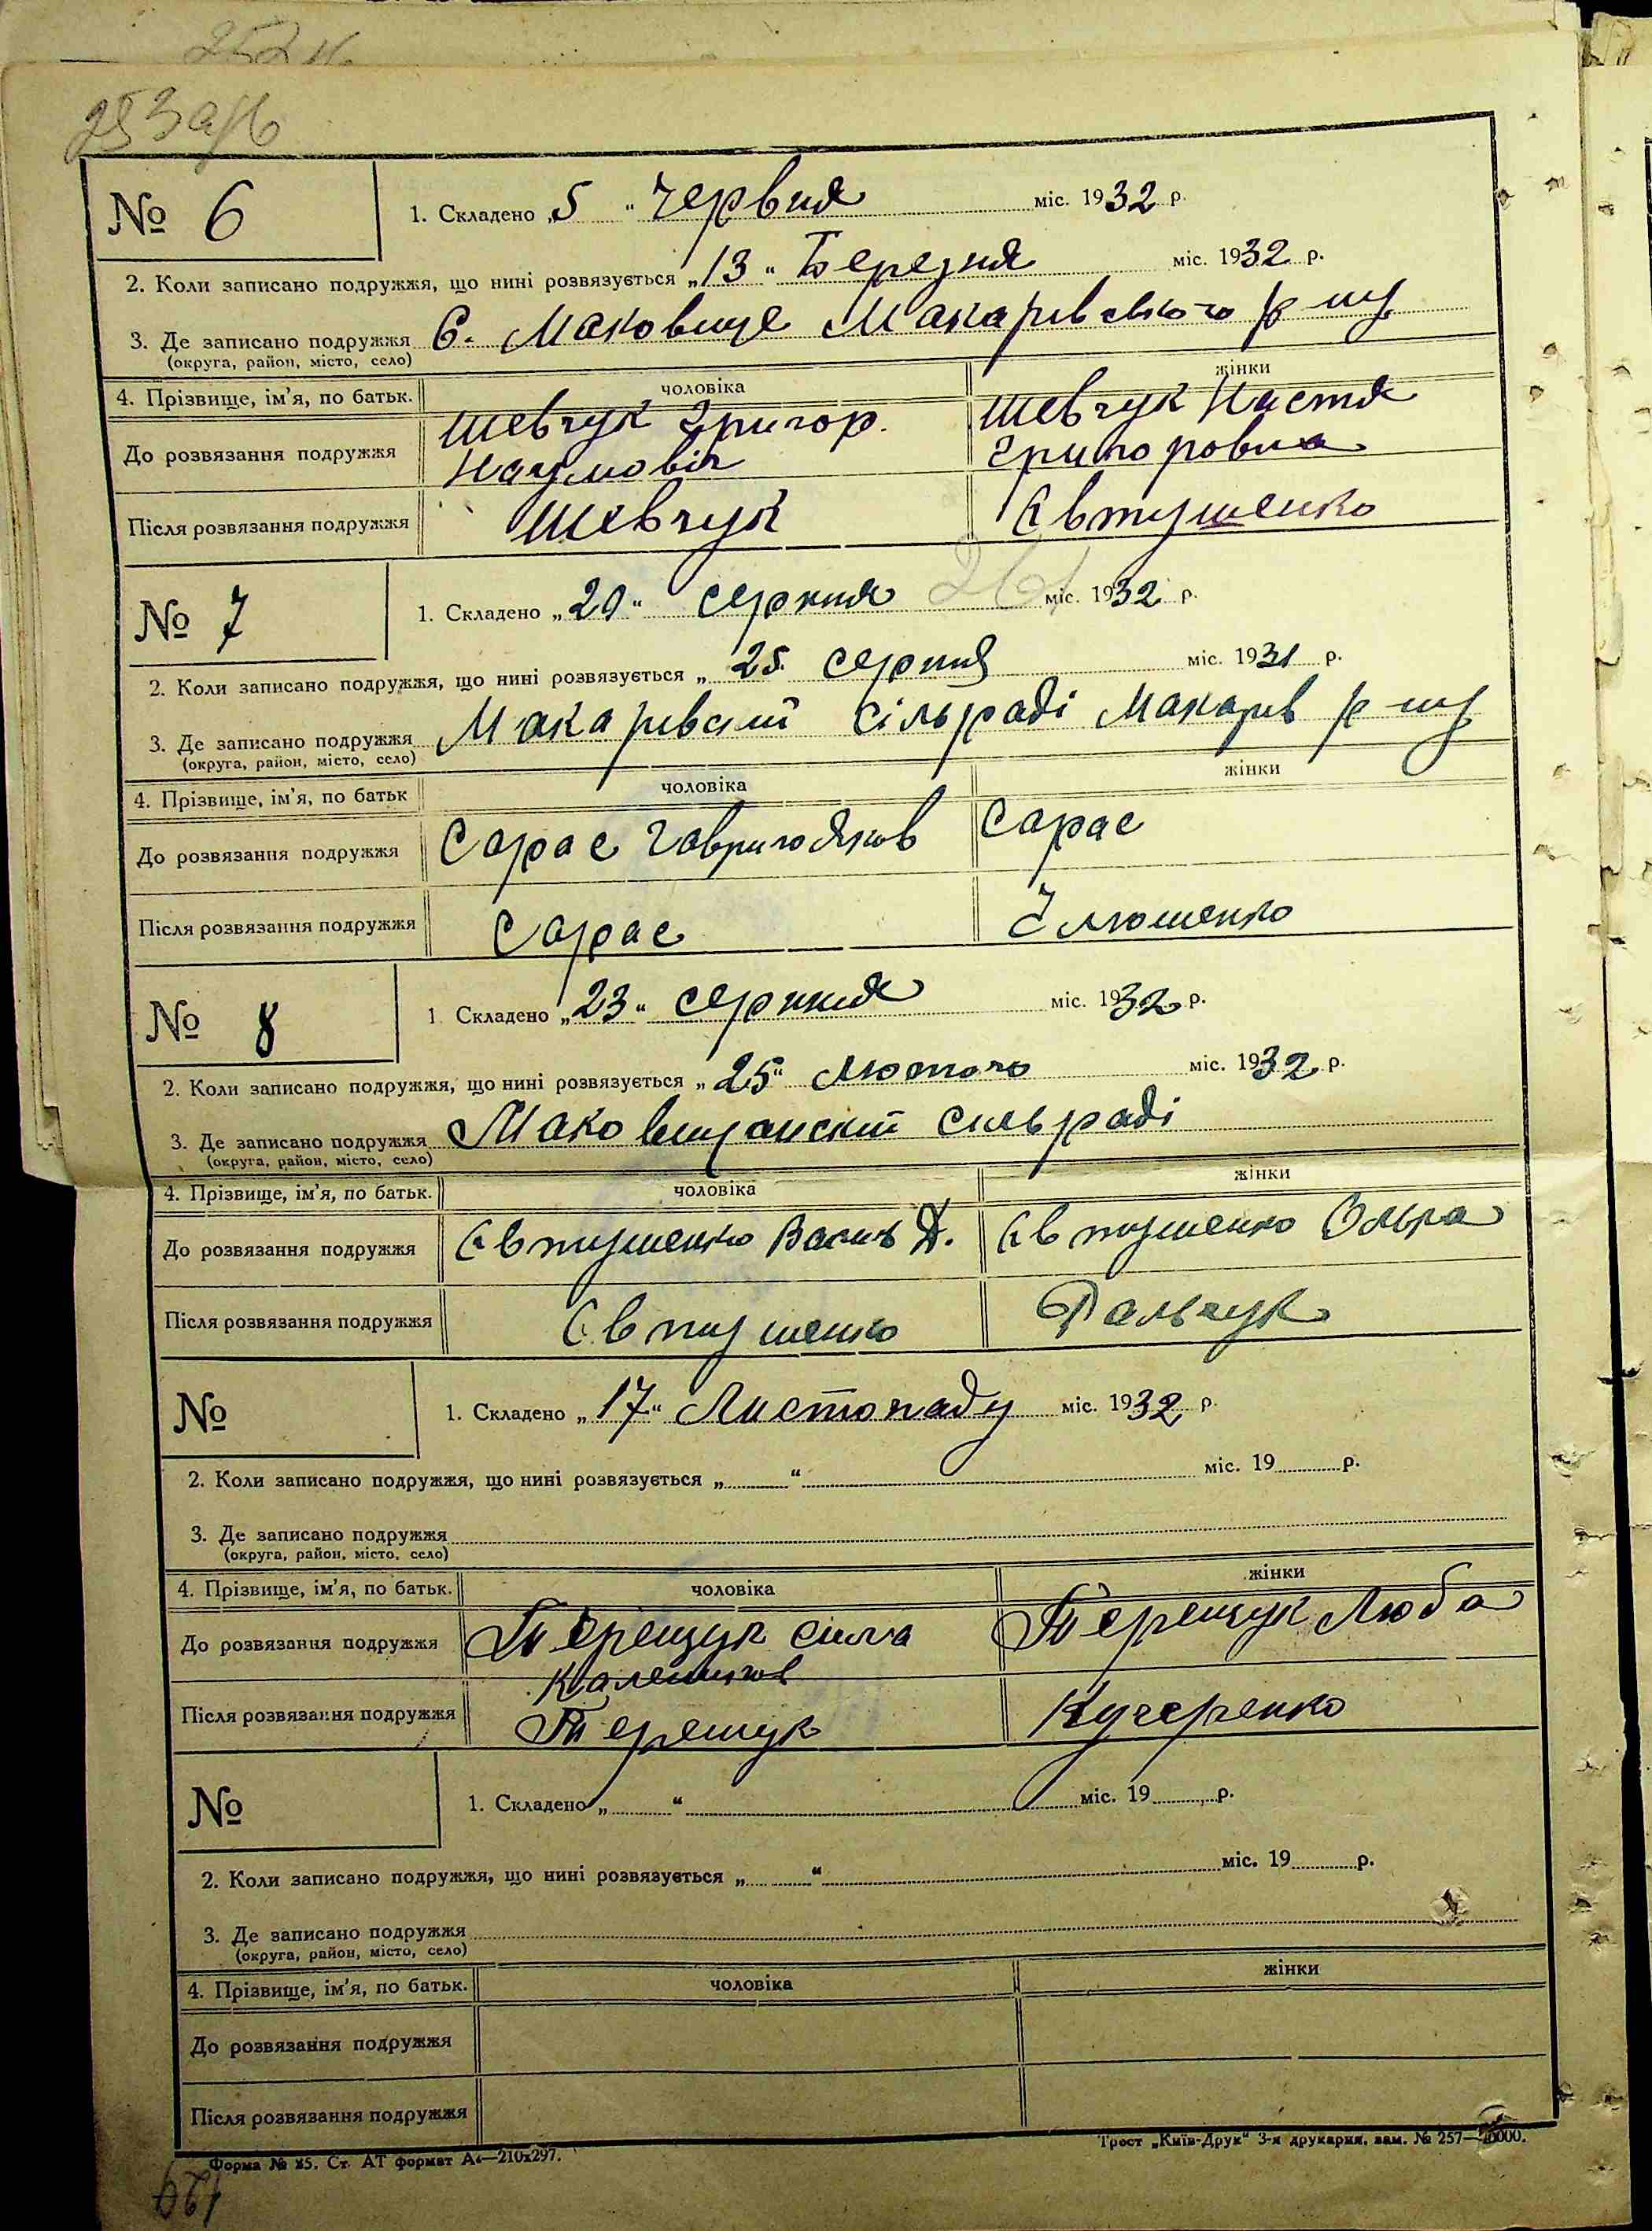 253 а/б
№ 6
1. Складено „5“ Червня міс. 1932 р.
2. Коли записано подружжя, що нині розвязується „13“ Березня міс. 1932 р.
3. Де записано подружжя С. Маковище Макарівського р-ну
(округа, район, місто, село)
4. Прізвище, ім'я, по батьк. чоловіка жінки
До розвязання подружжя Шевчук Григор. Шевчук Настя
Наумовіч Григоровна
Після розвязання подружжя Шевчук Євтушенко
№ 7
1. Складено „20“ серпня міс. 1932 р.
2. Коли записано подружжя, що нині розвязується „25. серпня міс. 1931 р.
3. Де записано подружжя Макарівский сільраді Макарів р-ну
(округа, район, місто, село)
4. Прізвище, ім'я, по батьк чоловіка жінки
До розвязання подружжя Сарас Сарас
Після розвязання подружжя Сарас Ілюшенко
№ 8
1. Складено „23“ серпня міс. 1932 р.
2. Коли записано подружжя, що нині розвязується „25“ Лютого міс. 1932 р.
3. Де записано подружжя Маковищанскій сильраді
(округа, район, місто, село)
4. Прізвище, ім'я, по батьк. чоловіка жінки
До розвязання подружжя Євтушенко Василь Д. Євтушенко Ольга
Після розвязання подружжя Євтушенко Пальчук
№
1. Складено „17“ Листопаду міс. 1932 р.
2. Коли записано подружжя, що нині розвязується „ “ міс. 19 р.
3. Де записано подружжя
(округа, район, місто, село)
4. Прізвище, ім'я, по батьк. чоловіка жінки
До розвязання подружжя Терещук сила Терещук Люба
Після розвязання подружжя Терещук Кучеренко
№
1. Складено „ “ міс. 19 р.
2. Коли записано подружжя, що нині розвязується „ “ міс. 19 р.
3. Де записано подружжя
(округа, район, місто, село)
4. Прізвище, ім'я, по батьк. чоловіка жінки
До розвязання подружжя
Після розвязання подружжя
Форма № 25. Ст. АТ формат А4—210х297. Трест „Київ-Друк“ 3-я друкарня, зам. № 257